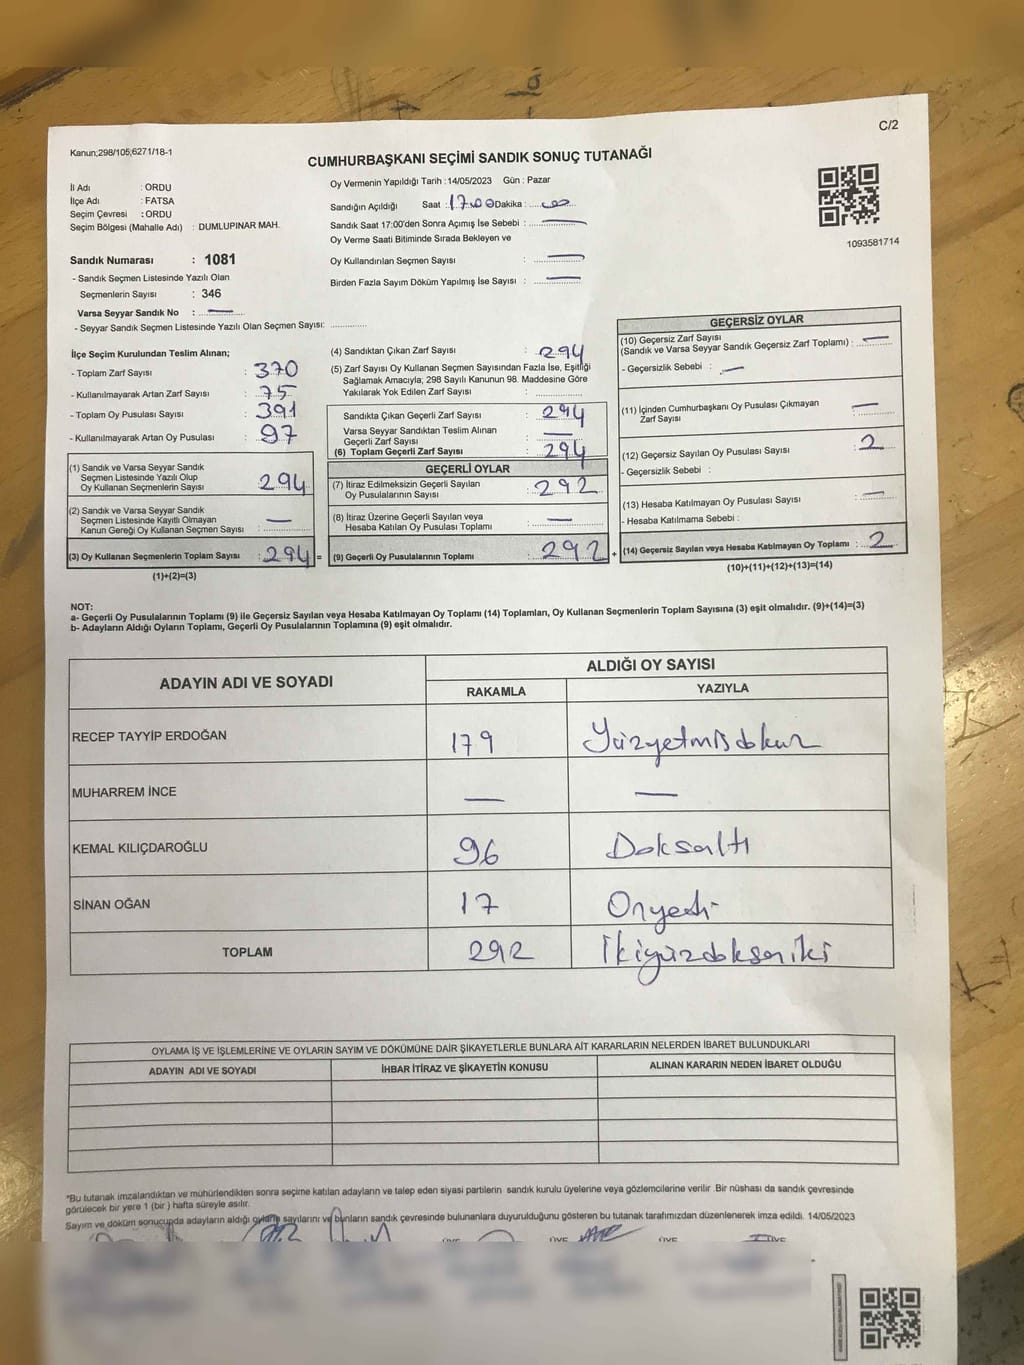 C/2
Kanun;298/105;6271/18-1
CUMHURBAŞKANI SEÇİMİ SANDIK SONUÇ TUTANAĞI
İl Adı : ORDU
İlçe Adı : FATSA
Seçim Çevresi : ORDU
Seçim Bölgesi (Mahalle Adı) : DUMLUPINAR MAH.
Sandık Numarası : 1081
- Sandık Seçmen Listesinde Yazılı Olan
Seçmenlerin Sayısı : 346
Varsa Seyyar Sandık No : —
- Seyyar Sandık Seçmen Listesinde Yazılı Olan Seçmen Sayısı: ............
Oy Vermenin Yapıldığı Tarih : 14/05/2023 Gün : Pazar
Sandığın Açıldığı Saat : 17.00 Dakika :
Sandık Saat 17:00'den Sonra Açımış İse Sebebi : —
Oy Verme Saati Bitiminde Sırada Bekleyen ve
Oy Kullandırılan Seçmen Sayısı : —
Birden Fazla Sayım Döküm Yapılmış İse Sayısı : —
1093581714
İlçe Seçim Kurulundan Teslim Alınan;
- Toplam Zarf Sayısı : 370
- Kullanılmayarak Artan Zarf Sayısı : 75
- Toplam Oy Pusulası Sayısı : 391
- Kullanılmayarak Artan Oy Pusulası : 97
(1) Sandık ve Varsa Seyyar Sandık
Seçmen Listesinde Yazılı Olup
Oy Kullanan Seçmenlerin Sayısı : 294
(2) Sandık ve Varsa Seyyar Sandık
Seçmen Listesinde Kayıtlı Olmayan
Kanun Gereği Oy Kullanan Seçmen Sayısı : —
(3) Oy Kullanan Seçmenlerin Toplam Sayısı : 294 =
(1)+(2)=(3)
(4) Sandıktan Çıkan Zarf Sayısı : 294
(5) Zarf Sayısı Oy Kullanan Seçmen Sayısından Fazla İse, Eşitliği
Sağlamak Amacıyla; 298 Sayılı Kanunun 98. Maddesine Göre
Yakılarak Yok Edilen Zarf Sayısı :
Sandıkta Çıkan Geçerli Zarf Sayısı : 294
Varsa Seyyar Sandıktan Teslim Alınan
Geçerli Zarf Sayısı : —
(6) Toplam Geçerli Zarf Sayısı : 294
GEÇERLİ OYLAR
(7) İtiraz Edilmeksizin Geçerli Sayılan
Oy Pusulalarının Sayısı : 292
(8) İtiraz Üzerine Geçerli Sayılan veya
Hesaba Katılan Oy Pusulası Toplamı : —
(9) Geçerli Oy Pusulalarının Toplamı : 292 +
GEÇERSİZ OYLAR
(10) Geçersiz Zarf Sayısı
(Sandık ve Varsa Seyyar Sandık Geçersiz Zarf Toplamı) : —
- Geçersizlik Sebebi : —
(11) İçinden Cumhurbaşkanı Oy Pusulası Çıkmayan
Zarf Sayısı : —
(12) Geçersiz Sayılan Oy Pusulası Sayısı : 2
- Geçersizlik Sebebi :
(13) Hesaba Katılmayan Oy Pusulası Sayısı : —
- Hesaba Katılmama Sebebi :
(14) Geçersiz Sayılan veya Hesaba Katılmayan Oy Toplamı : 2
(10)+(11)+(12)+(13)=(14)
NOT:
a- Geçerli Oy Pusulalarının Toplamı (9) ile Geçersiz Sayılan veya Hesaba Katılmayan Oy Toplamı (14) Toplamları, Oy Kullanan Seçmenlerin Toplam Sayısına (3) eşit olmalıdır. (9)+(14)=(3)
b- Adayların Aldığı Oyların Toplamı, Geçerli Oy Pusulalarının Toplamına (9) eşit olmalıdır.
ADAYIN ADI VE SOYADI
ALDIĞI OY SAYISI
RAKAMLA YAZIYLA
RECEP TAYYİP ERDOĞAN 179 Yüzyetmişdokuz
MUHARREM İNCE — —
KEMAL KILIÇDAROĞLU 96 Doksaltı
SİNAN OĞAN 17 Onyedi
TOPLAM 292 İkiyüzdoksaniki
OYLAMA İŞ VE İŞLEMLERİNE VE OYLARIN SAYIM VE DÖKÜMÜNE DAİR ŞİKAYETLERLE BUNLARA AİT KARARLARIN NELERDEN İBARET BULUNDUKLARI
ADAYIN ADI VE SOYADI İHBAR İTİRAZ VE ŞİKAYETİN KONUSU ALINAN KARARIN NEDEN İBARET OLDUĞU
*Bu tutanak imzalandıktan ve mühürlendikten sonra seçime katılan adayların ve talep eden siyasi partilerin sandık kurulu üyelerine veya gözlemcilerine verilir. Bir nüshası da sandık çevresinde
görülecek bir yere 1 (bir) hafta süreyle asılır.
Sayım ve döküm sonucunda adayların aldığı oyların sayılarını ve bunların sandık çevresinde bulunanlara duyurulduğunu gösteren bu tutanak tarafımızdan düzenlenerek imza edildi. 14/05/2023
ÜYE ÜYE ÜYE